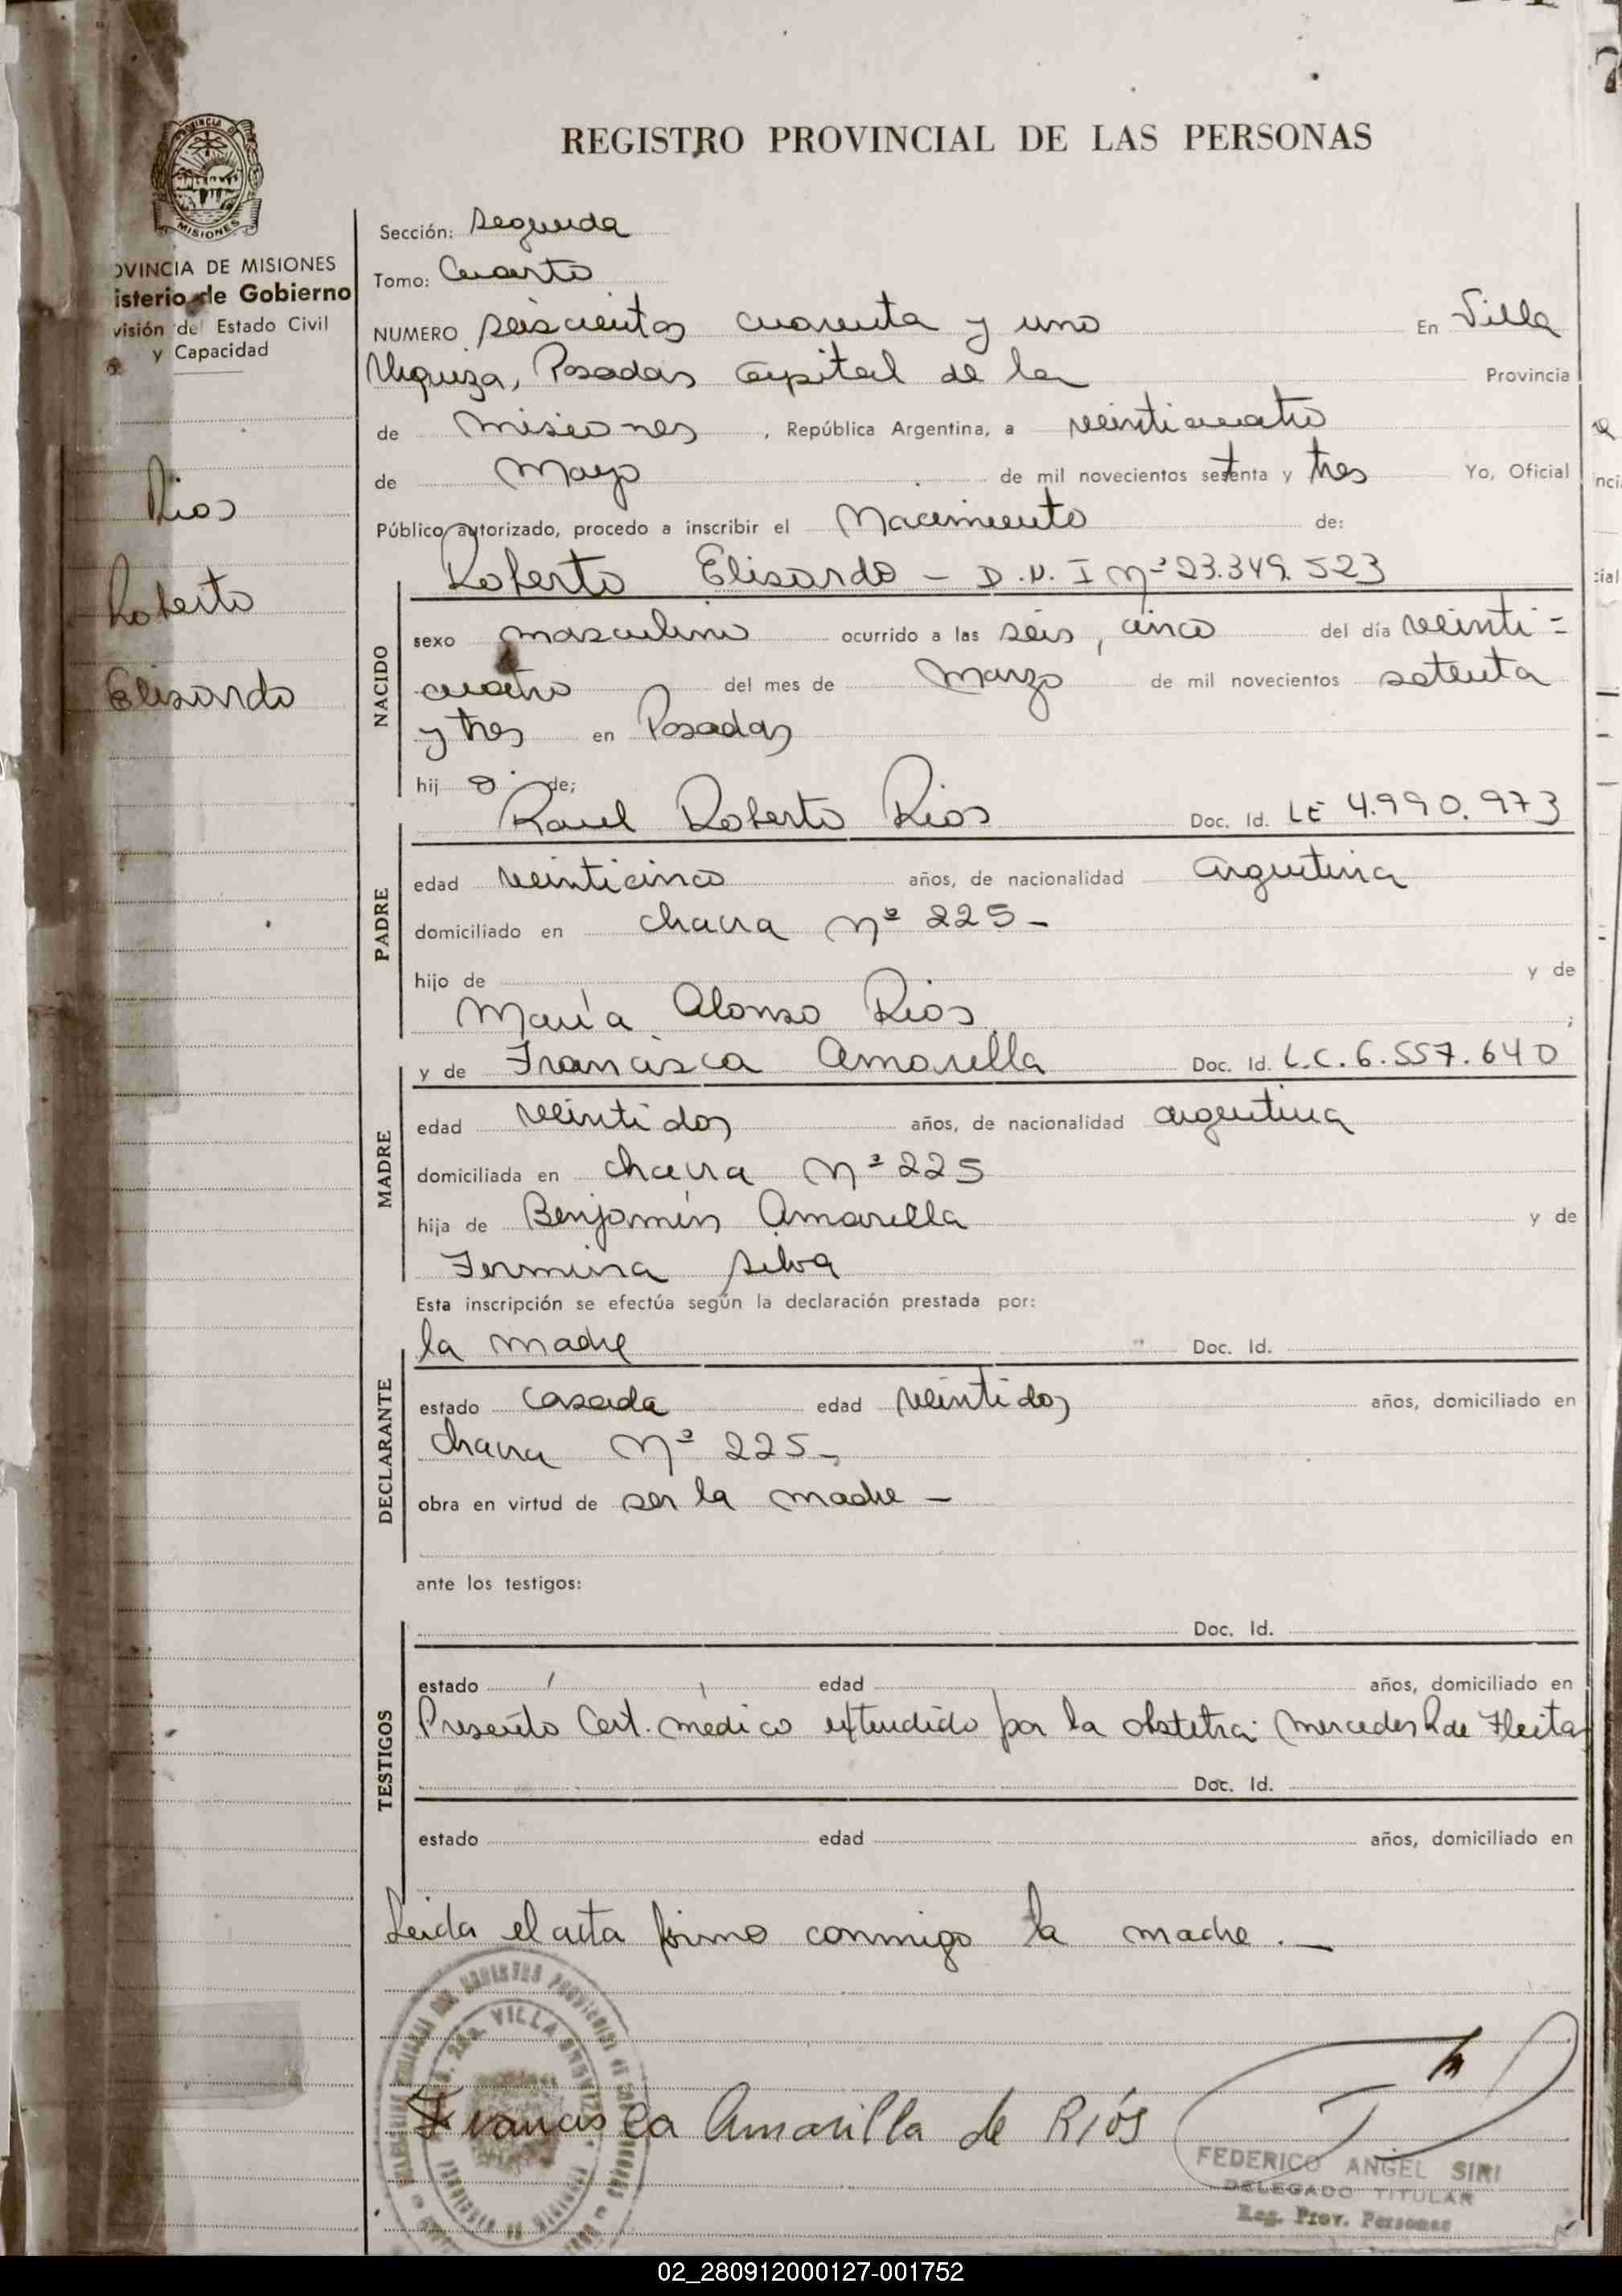 REGISTRO PROVINCIAL DE LAS PERSONAS
MISIONES
OVINCIA DE MISIONES
isterio de Gobierno
visión del Estado Civil
y Capacidad
Rios
Roberto
Elisardo
Sección: Segunda
Tomo: Cuarto
NUMERO seiscientos cuarenta y uno En Villa
Urquiza, Posadas Capital de la Provincia
de Misiones, República Argentina, a veinticuatro
de Mayo de mil novecientos setenta y tres Yo, Oficial
Público autorizado, procedo a inscribir el Nacimiento de:
Roberto Elisardo - D.N.I Nº 23.349.523
NACIDO
sexo masculino ocurrido a las seis, cinco del día veinti=
cuatro del mes de Marzo de mil novecientos setenta
y tres en Posadas
hij o de;
Raul Roberto Rios Doc. Id. LE 4.990.973
PADRE
edad veinticinco años, de nacionalidad argentina
domiciliado en chacra Nº 225-
hijo de y de
María Alonso Rios ;
y de Francisca Amarilla Doc. Id. L.C. 6.557.640
MADRE
edad veintidos años, de nacionalidad argentina
domiciliada en chacra Nº 225
hija de Benjamín Amarilla y de
Fermina Silva
Esta inscripción se efectúa según la declaración prestada por:
la madre Doc. Id.
DECLARANTE
estado casada edad veintidos años, domiciliado en
chacra Nº 225-
obra en virtud de ser la madre -
ante los testigos:
Doc. Id.
TESTIGOS
estado edad años, domiciliado en
Presento Cert. medico extendido por la obstetra: Mercedes R de Fleitas
Doc. Id.
estado edad años, domiciliado en
Leida el acta firma conmigo la madre.-
VILLA
Francisca Amarilla de Ríos
FEDERICO ANGEL SIRI
DELEGADO TITULAR
Reg. Prov. Personas
02_280912000127-001752